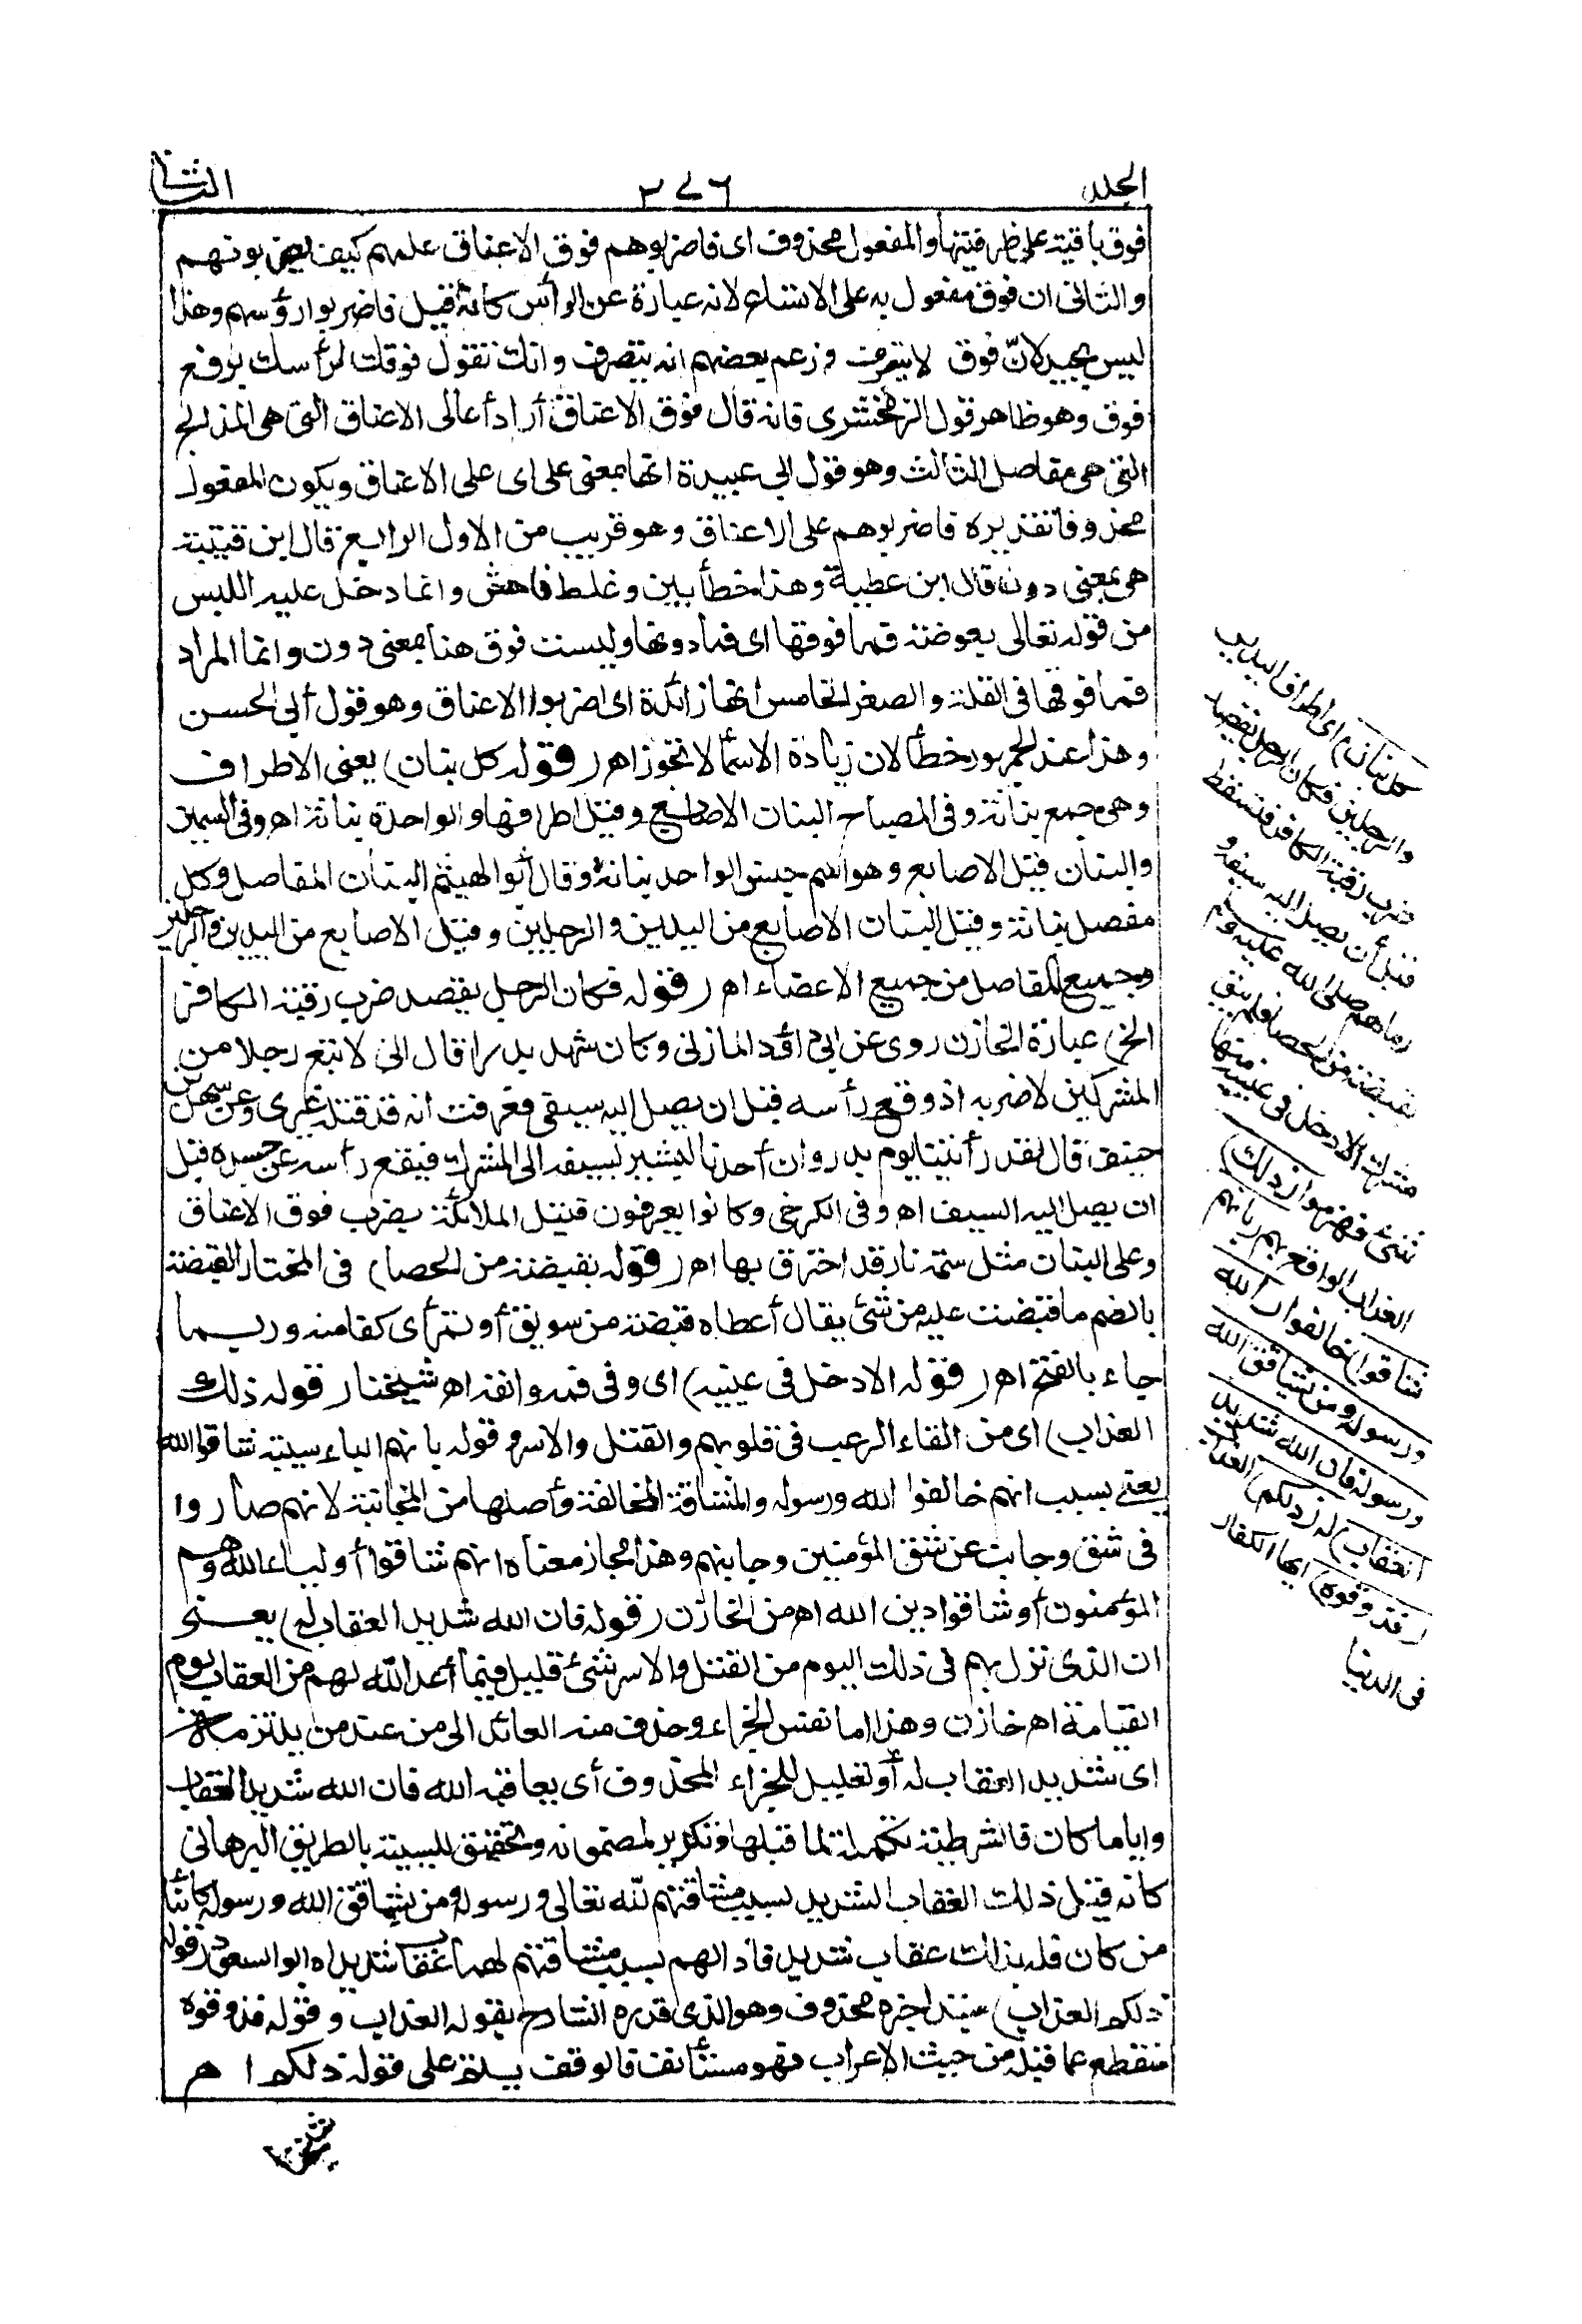 الجلد
٣٧٦
الثانى
فوق باقية على ظرفيتها والمفعول محذوف اى فاضربوهم فوق الاعناق علمهم كيف يضربونهم
والثانى ان فوق مفعول به على الاتساع لانه عبارة عن الرأس كأنه قيل فاضربوا رؤسهم وهذا
ليس بجيد لانّ فوق لا يتصرف وزعم بعضهم انه يتصرف وانك تقول فوقك لرأسك برفع
فوق وهو ظاهر قول الزمخشرى فانه قال فوق الاعناق أراد أعالى الاعناق التى هى المذابح
التى هى مفاصل الثالث وهو قول ابى عبيدة انها بمعنى على اى على الاعناق ويكون المفعول
محذوفا تقديره فاضربوهم على الاعناق وهو قريب من الاول الرابع قال ابن قتيبة
هى بمعنى دون قال ابن عطية وهذا خطأ بين وغلط فاحش وانما دخل عليه اللبس
من قوله تعالى بعوضة فما فوقها اى فما دونها وليست فوق هنا بمعنى دون وانما المراد
فما فوقها فى القلة والصغر الخامس انها زائدة اى اضربوا الاعناق وهو قول أبى الحسن
وهذا عند الجمهور خطأ لان زيادة الاسماء لا تجوز اهـ (قوله كل بنان) يعنى الاطراف
وهى جمع بنانة وفى المصباح البنان الاصابع وقيل اطرافها والواحدة بنانة اهـ وفى السمين
والبنان قيل الاصابع وهو اسم جنس الواحد بنانة وقال أبو الهيثم البنان المفاصل وكل
مفصل بنانة وقيل البنان الاصابع من اليدين والرجلين وقيل الاصابع من اليدين والرجلين
وجميع المفاصل من جميع الاعضاء اهـ (قوله فكان الرجل يقصد ضرب رقبة الكافر
الخ) عبارة الخازن روى عن ابى داود المازنى وكان شهد بدرا قال انى لاتبع رجلا من
المشركين لاضربه اذ وقع رأسه قبل ان يصل اليه سيفى فعرفت انه قد قتله غيرى وعن سهل بن
حنيف قال لقد رأيتنا يوم بدر وان أحدنا ليشير بسيفه الى المشرك فيقع رأسه عن جسده قبل
ان يصل اليه السيف اهـ وفى الكرخى وكانوا يعرفون قتيل الملائكة بضرب فوق الاعناق
وعلى البنان مثل سمة نار قد احترق بها اهـ (قوله بقبضة من الحصا) فى المختار القبضة
بالضم ما قبضت عليه من شئ يقال أعطاه قبضة من سويق أو تمر أى كفا منه وربما
جاء بالفتح اهـ (قوله الا دخل فى عينيه) اى وفى فمه وانفه اهـ شيخنا (قوله ذلك
العذاب) اى من القاء الرعب فى قلوبهم والقتل والاسر وقوله بانهم الباء سببية شاقوا الله
يعنى بسبب انهم خالفوا الله ورسوله والمشاقة المخالفة وأصلها من المجانبة لانهم صاروا
فى شق وجانب عن شق المؤمنين وجانبهم وهذا مجاز معناه انهم شاقوا أولياء الله وهم
المؤمنون أو شاقوا دين الله اهـ من الخازن (قوله فان الله شديد العقاب له) يعنى
ان الذى نزل بهم فى ذلك اليوم من القتل والاسر شئ قليل فيما أعد الله لهم من العقاب يوم
القيامة اهـ خازن وهذا اما نفس الجزاء وحذف منه العائد الى من عند من يلتزمه
اى شديد العقاب له أو تعليل للجزاء المحذوف أى يعاقبه الله فان الله شديد العقاب
وايا ما كان فالشرطية تكملة لما قبلها وتكرير لمضمونه وتحقيق للسببية بالطريق البرهانى
كأنه قيل ذلك العقاب الشديد بسبب مشاقتهم لله تعالى ورسوله ومن يشاقق الله ورسوله كائنا
من كان فله بذلك عقاب شديد فاذا لهم بسبب مشاقتهم لهما عقاب شديد اهـ ابو السعود (قوله
ذلكم العذاب) مبتدا خبره محذوف وهو الذى قدره الشارح بقوله العذاب وقوله فذوقوه
منقطع عما قبله من حيث الاعراب فهو مستأنف فالوقف يلزم على قوله ذلكم اهـ
كل بنان) اى اطراف اليدين
والرجلين فكان الرجل يقصد
ضرب رقبة الكافر فتسقط
قبل أن يصل اليه سيفه و
رماهم صلى الله عليه وسلم
بقبضة من الحصا فلم يبق
مشرك الا دخل فى عينيه منها
شئ فهزموا (ذلك)
العذاب الواقع بهم (بانهم
شاقوا) خالفوا (الله
ورسوله ومن يشاقق الله
ورسوله فان الله شديد
العقاب) له (ذلكم) العذاب
(فذوقوه) ايها الكفار
فى الدنيا